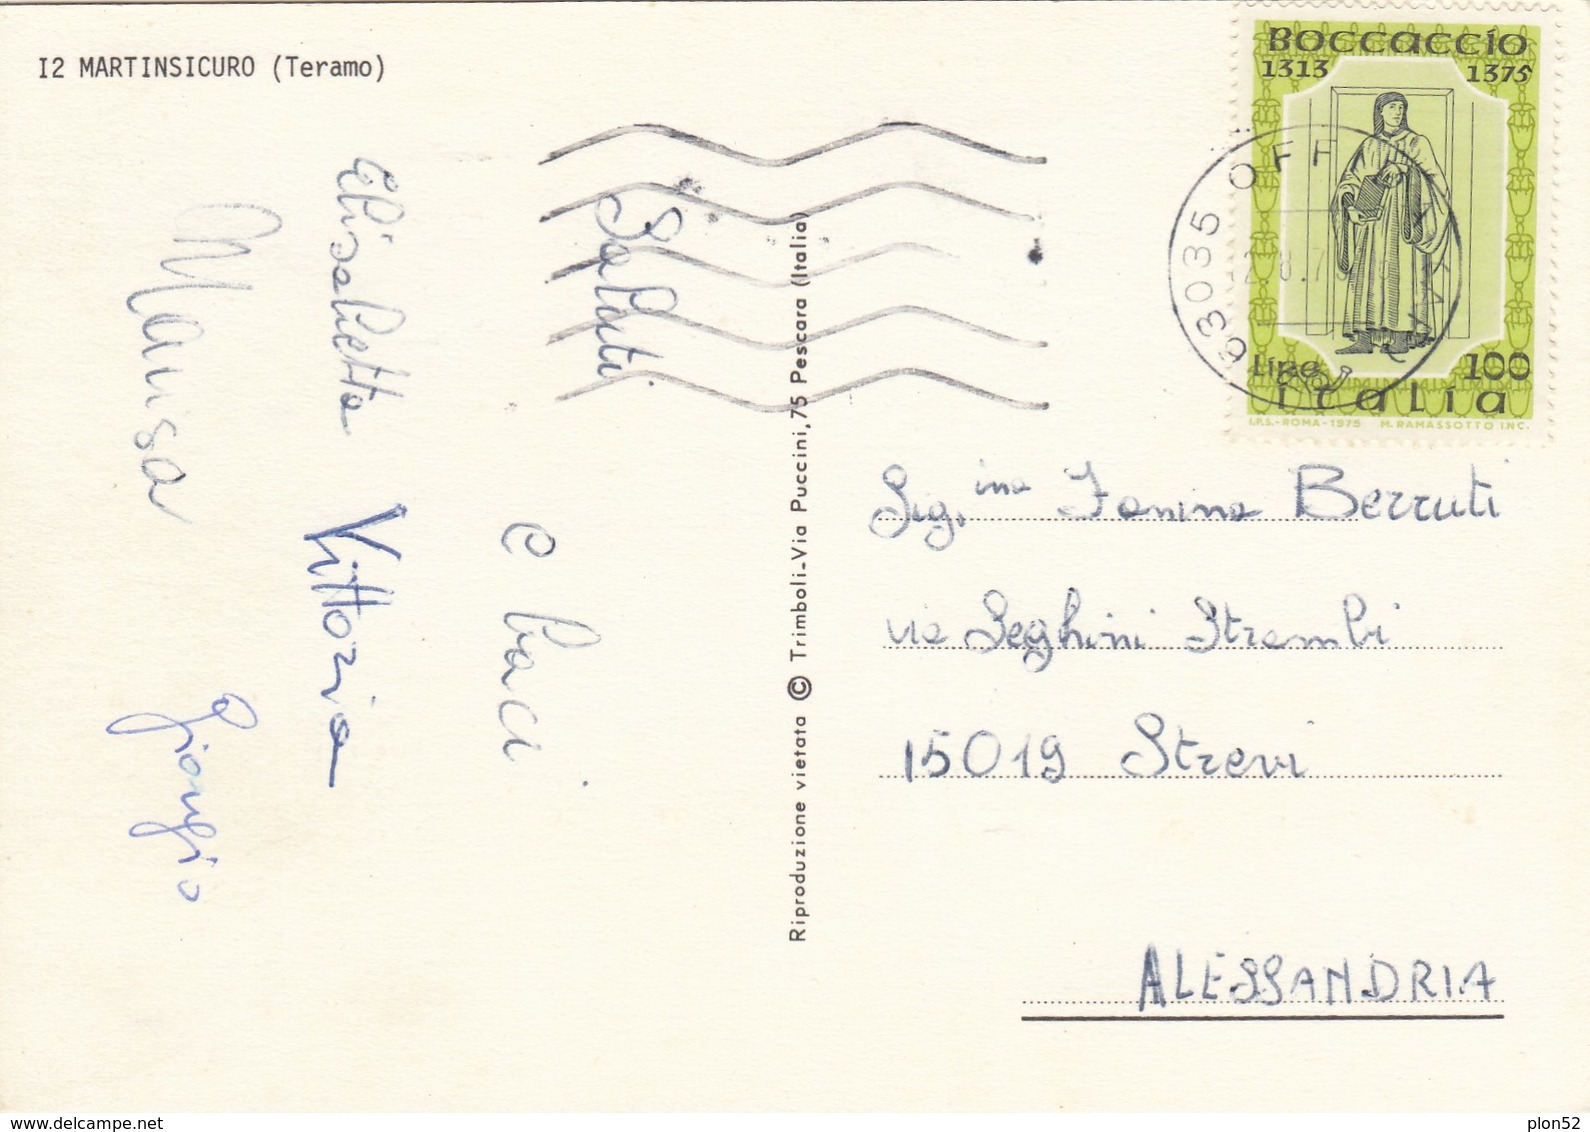 I2 MARTINSICURO (Teramo)
BOCCACCIO
1313 1375
Lire 100
Italia
I.P.S.-ROMA-1975 M. RAMASSOTTO INC.
63035 OFF
Saluti
e baci
Elisabetta Vittoria
Marisa Giorgio
Riproduzione vietata © Trimboli-Via Puccini,75 Pescara (Italia)
Sig.ina Jannina Berruti
via Seghini Strambi
15019 Strevi
ALESSANDRIA
delcampe.net
plon52